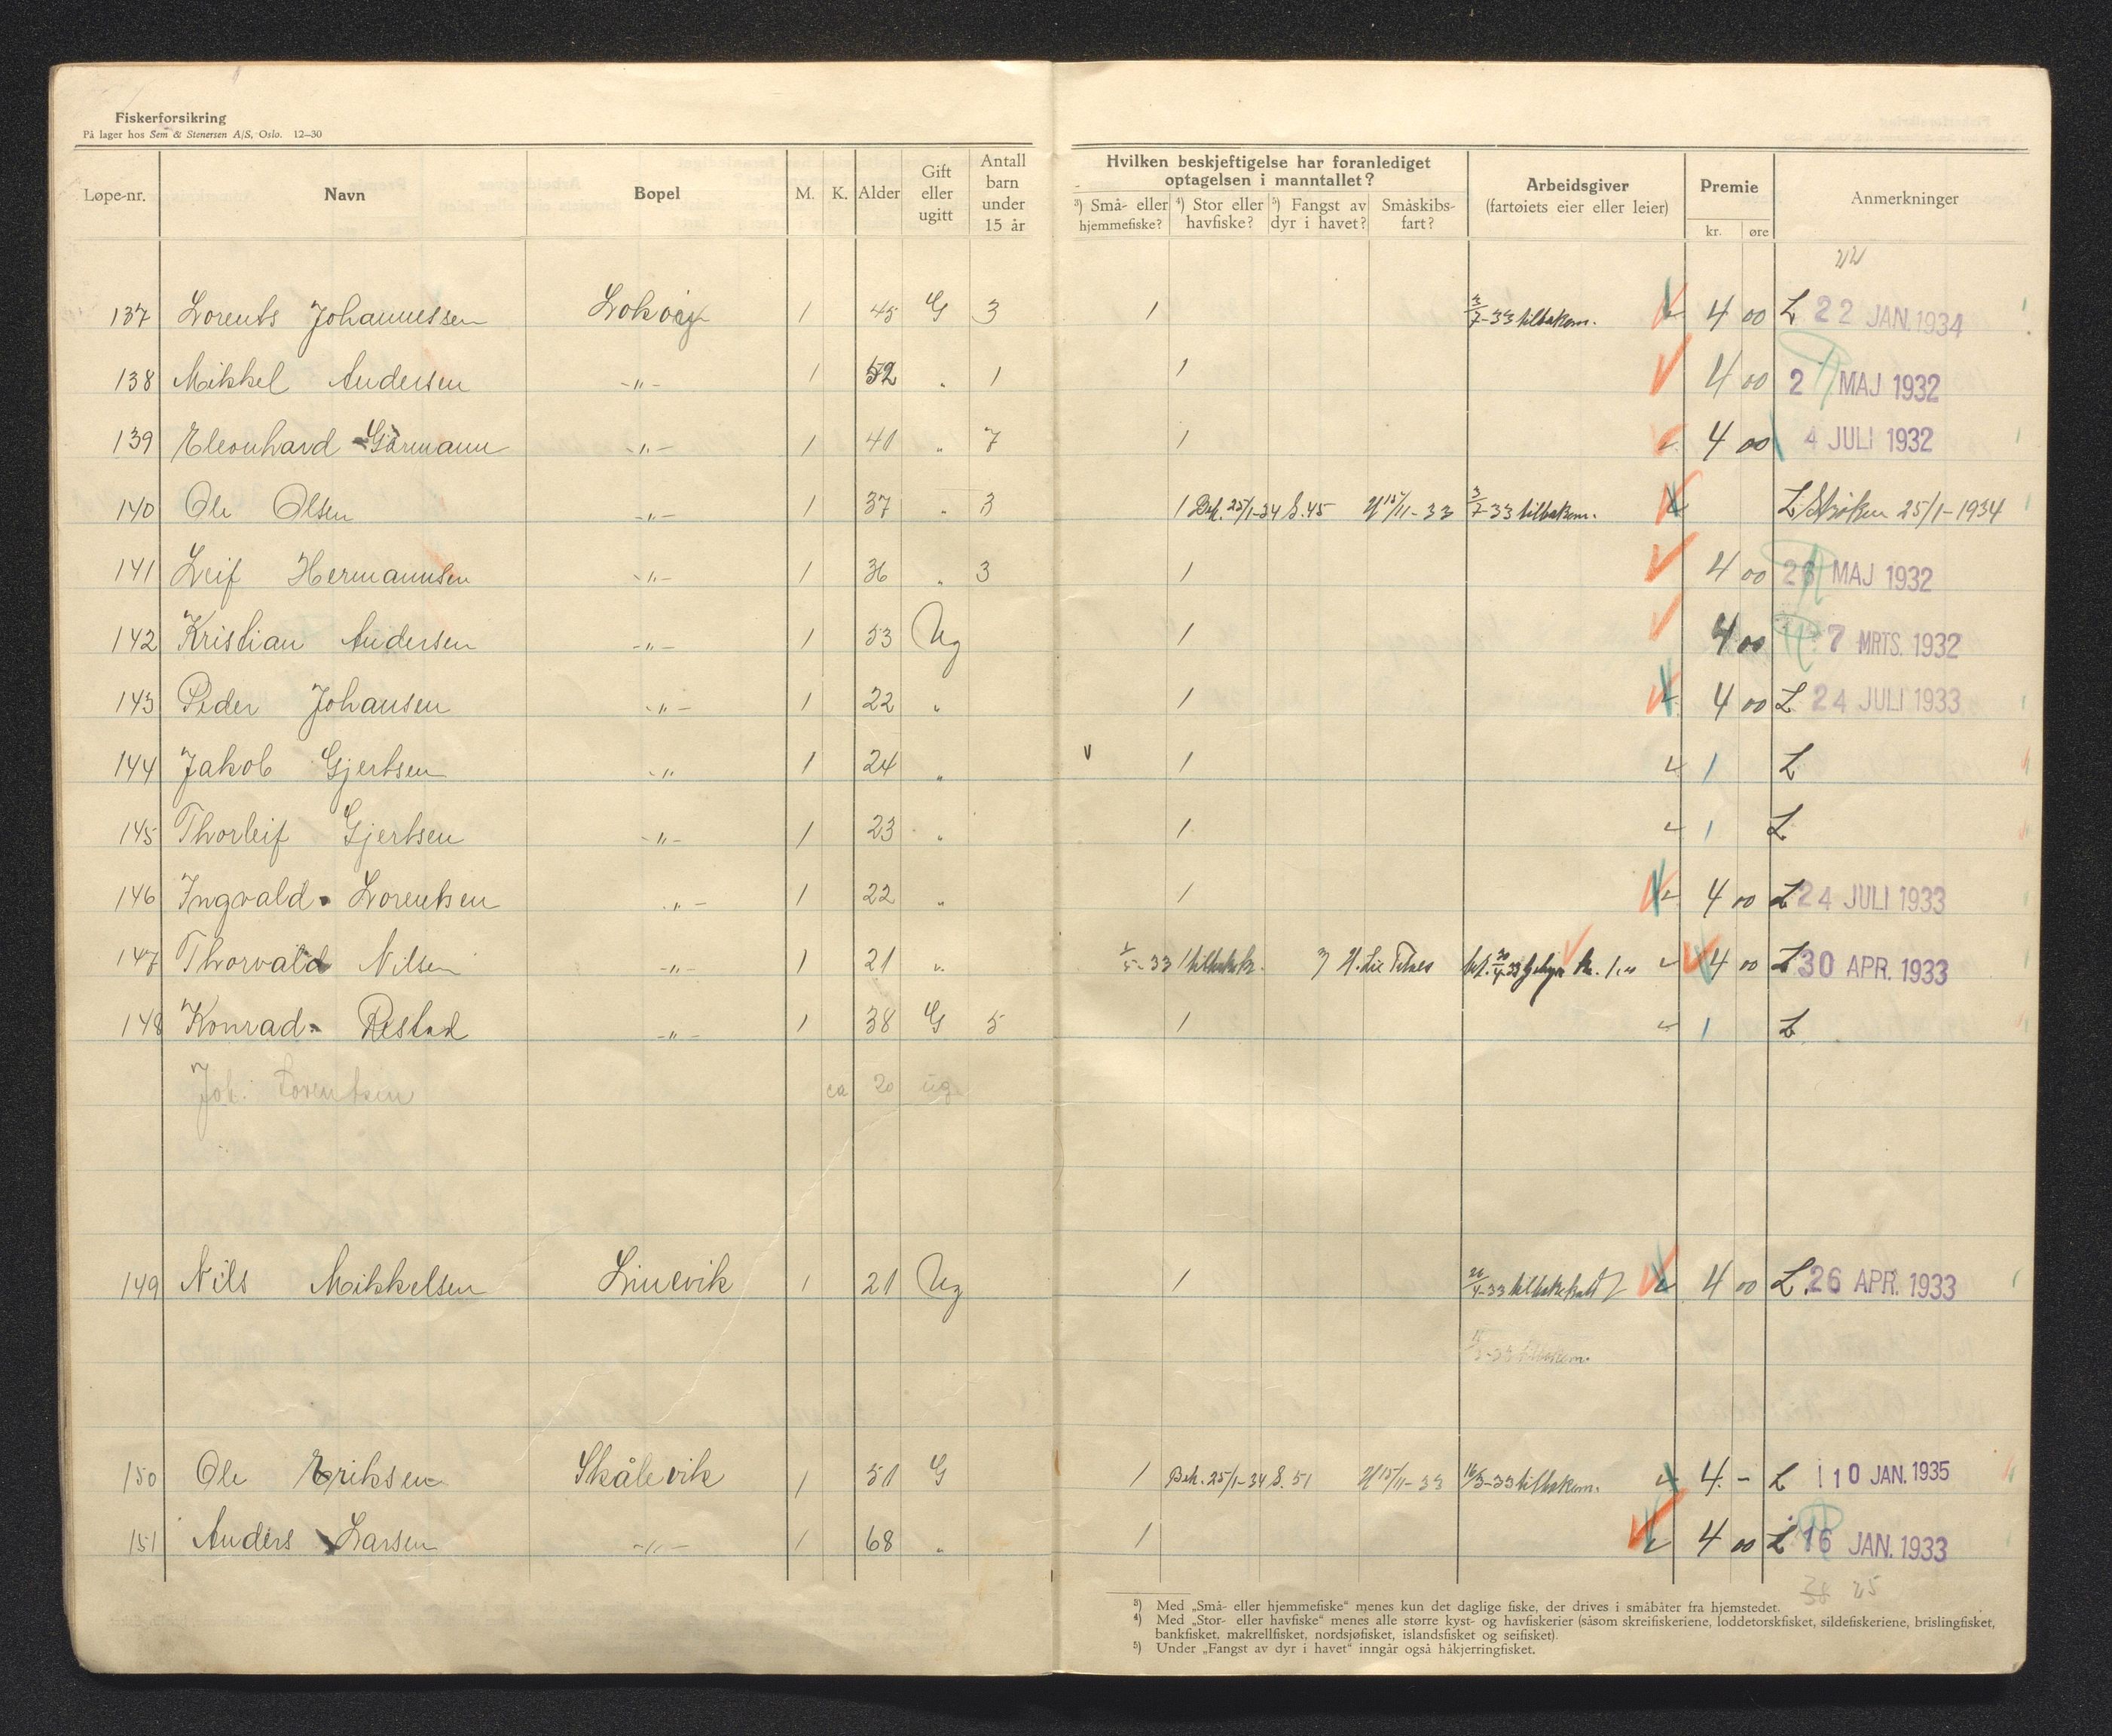 Fiskerforsikring
På lager hos Sem & Stenersen A/S, Oslo. 12—30
Løpe-nr. Navn Bopel M. K. Alder Gift eller ugitt Antall barn under 15 år
Hvilken beskjeftigelse har foranlediget optagelsen i manntallet?
³) Små- eller hjemmefiske? ⁴) Stor eller havfiske? ⁵) Fangst av dyr i havet? Småskibs- fart?
Arbeidsgiver (fartøiets eier eller leier) Premie kr. øre Anmerkninger
137 Lorents Johannessen 1 45 G 3 1 3/7-33 tilbakem. 4 00 L 22 JAN. 1934
138 Mikkel Andersen -"- 1 52 " 1 1 4 00 2 MAJ 1932
139 Eleonhard -"- 1 40 " 7 1 4 00 4 JULI 1932
140 Ole Olsen -"- 1 37 " 3 1 Beh. 25/1-34 S. 45 15/11-33 3/7-33 tilbakem. L Strøken 25/1-1934
141 Leif Hermannsen -"- 1 36 " 3 1 4 00 MAJ 1932
142 Kristian Andersen -"- 1 53 Ug 1 4 00 7 MRTS. 1932
143 Peder Johansen -"- 1 22 " 1 4 00 L 24 JULI 1933
144 Jakob Gjertsen -"- 1 24 " v 1 1 L
145 Thorleif Gjertsen -"- 1 23 " 1 1 L
146 Ingvald Lorentsen -"- 1 22 " 1 4 00 L 24 JULI 1933
147 Thorvald Nilsen -"- 1 21 " 1/5-33 1 4 00 L 30 APR. 1933
148 Konrad Restad -"- 1 38 G 5 1 1 L
Joh. Lorentsen ca 20 ug.
149 Nils Mikkelsen Linevik 1 21 Ug 1 26/4-33 4 00 L 26 APR. 1933
-33 tilbakem.
150 Ole Eriksen Skålevik 1 51 G 1 Beh. 25/1-34 S. 51 15/11-33 16/3-33 tilbakem. 4 - L 10 JAN. 1935
151 Anders Larsen -"- 1 68 " 1 4 00 L 16 JAN. 1933
25
³) Med „Små- eller hjemmefiske“ menes kun det daglige fiske, der drives i småbåter fra hjemstedet.
⁴) Med „Stor- eller havfiske“ menes alle større kyst- og havfiskerier (såsom skreifiskeriene, loddetorskfisket, sildefiskeriene, brislingfisket,
bankfisket, makrellfisket, nordsjøfisket, islandsfisket og seifisket).
⁵) Under „Fangst av dyr i havet“ inngår også håkjerringfisket.